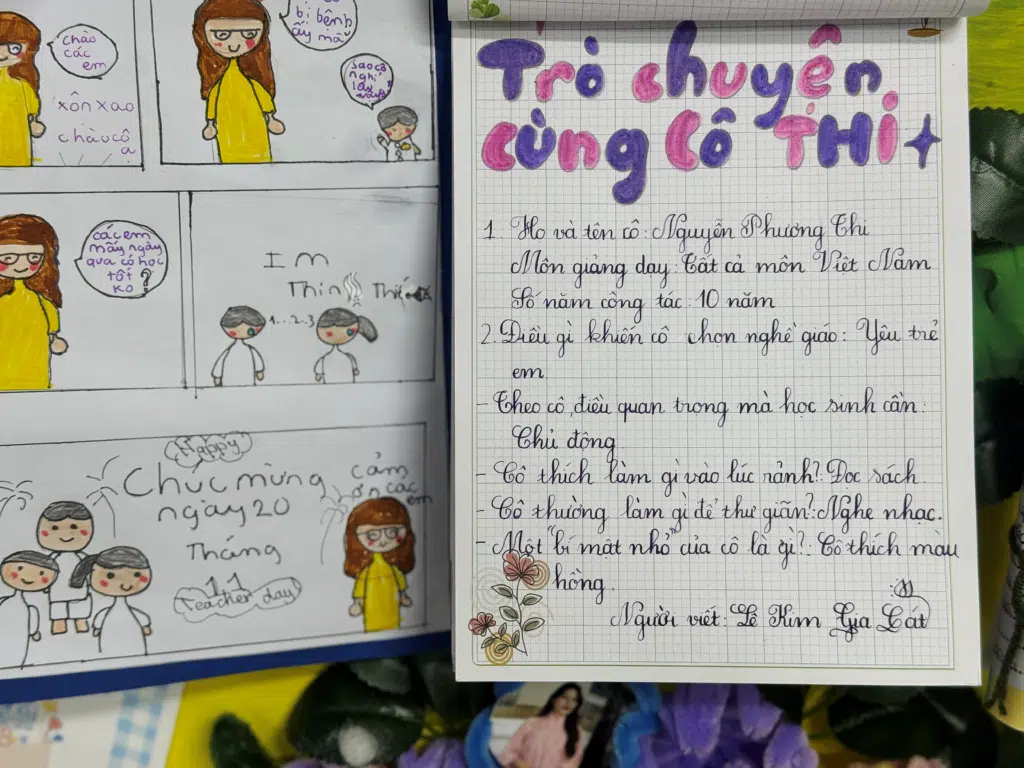 chào
các
em
xôn xao
chào cô
ạ
bị bệnh
ấy mà
sao cô
nghỉ
lâu
vậy?
các em
mấy ngày
qua có học
tốt
ko ?
I m
Thin Thít
1...2..3
Happy
Chúc mừng
ngày 20
Tháng
11
Teacher day
cảm
ơn các
em
Trò chuyện
cùng Cô THi
1. Họ và tên cô: Nguyễn Phương Thi
Môn giảng dạy: Tất cả môn Việt Nam
Số năm công tác: 10 năm
2. Điều gì khiến cô chọn nghề giáo: Yêu trẻ
em.
- Theo cô, điều quan trọng mà học sinh cần:
Chủ động
- Cô thích làm gì vào lúc rảnh?: Đọc sách.
- Cô thường làm gì để thư giãn?: Nghe nhạc.
- Một "bí mật nhỏ" của cô là gì?: Cô thích màu
hồng.
Người viết: Lê Kim Gia Cát